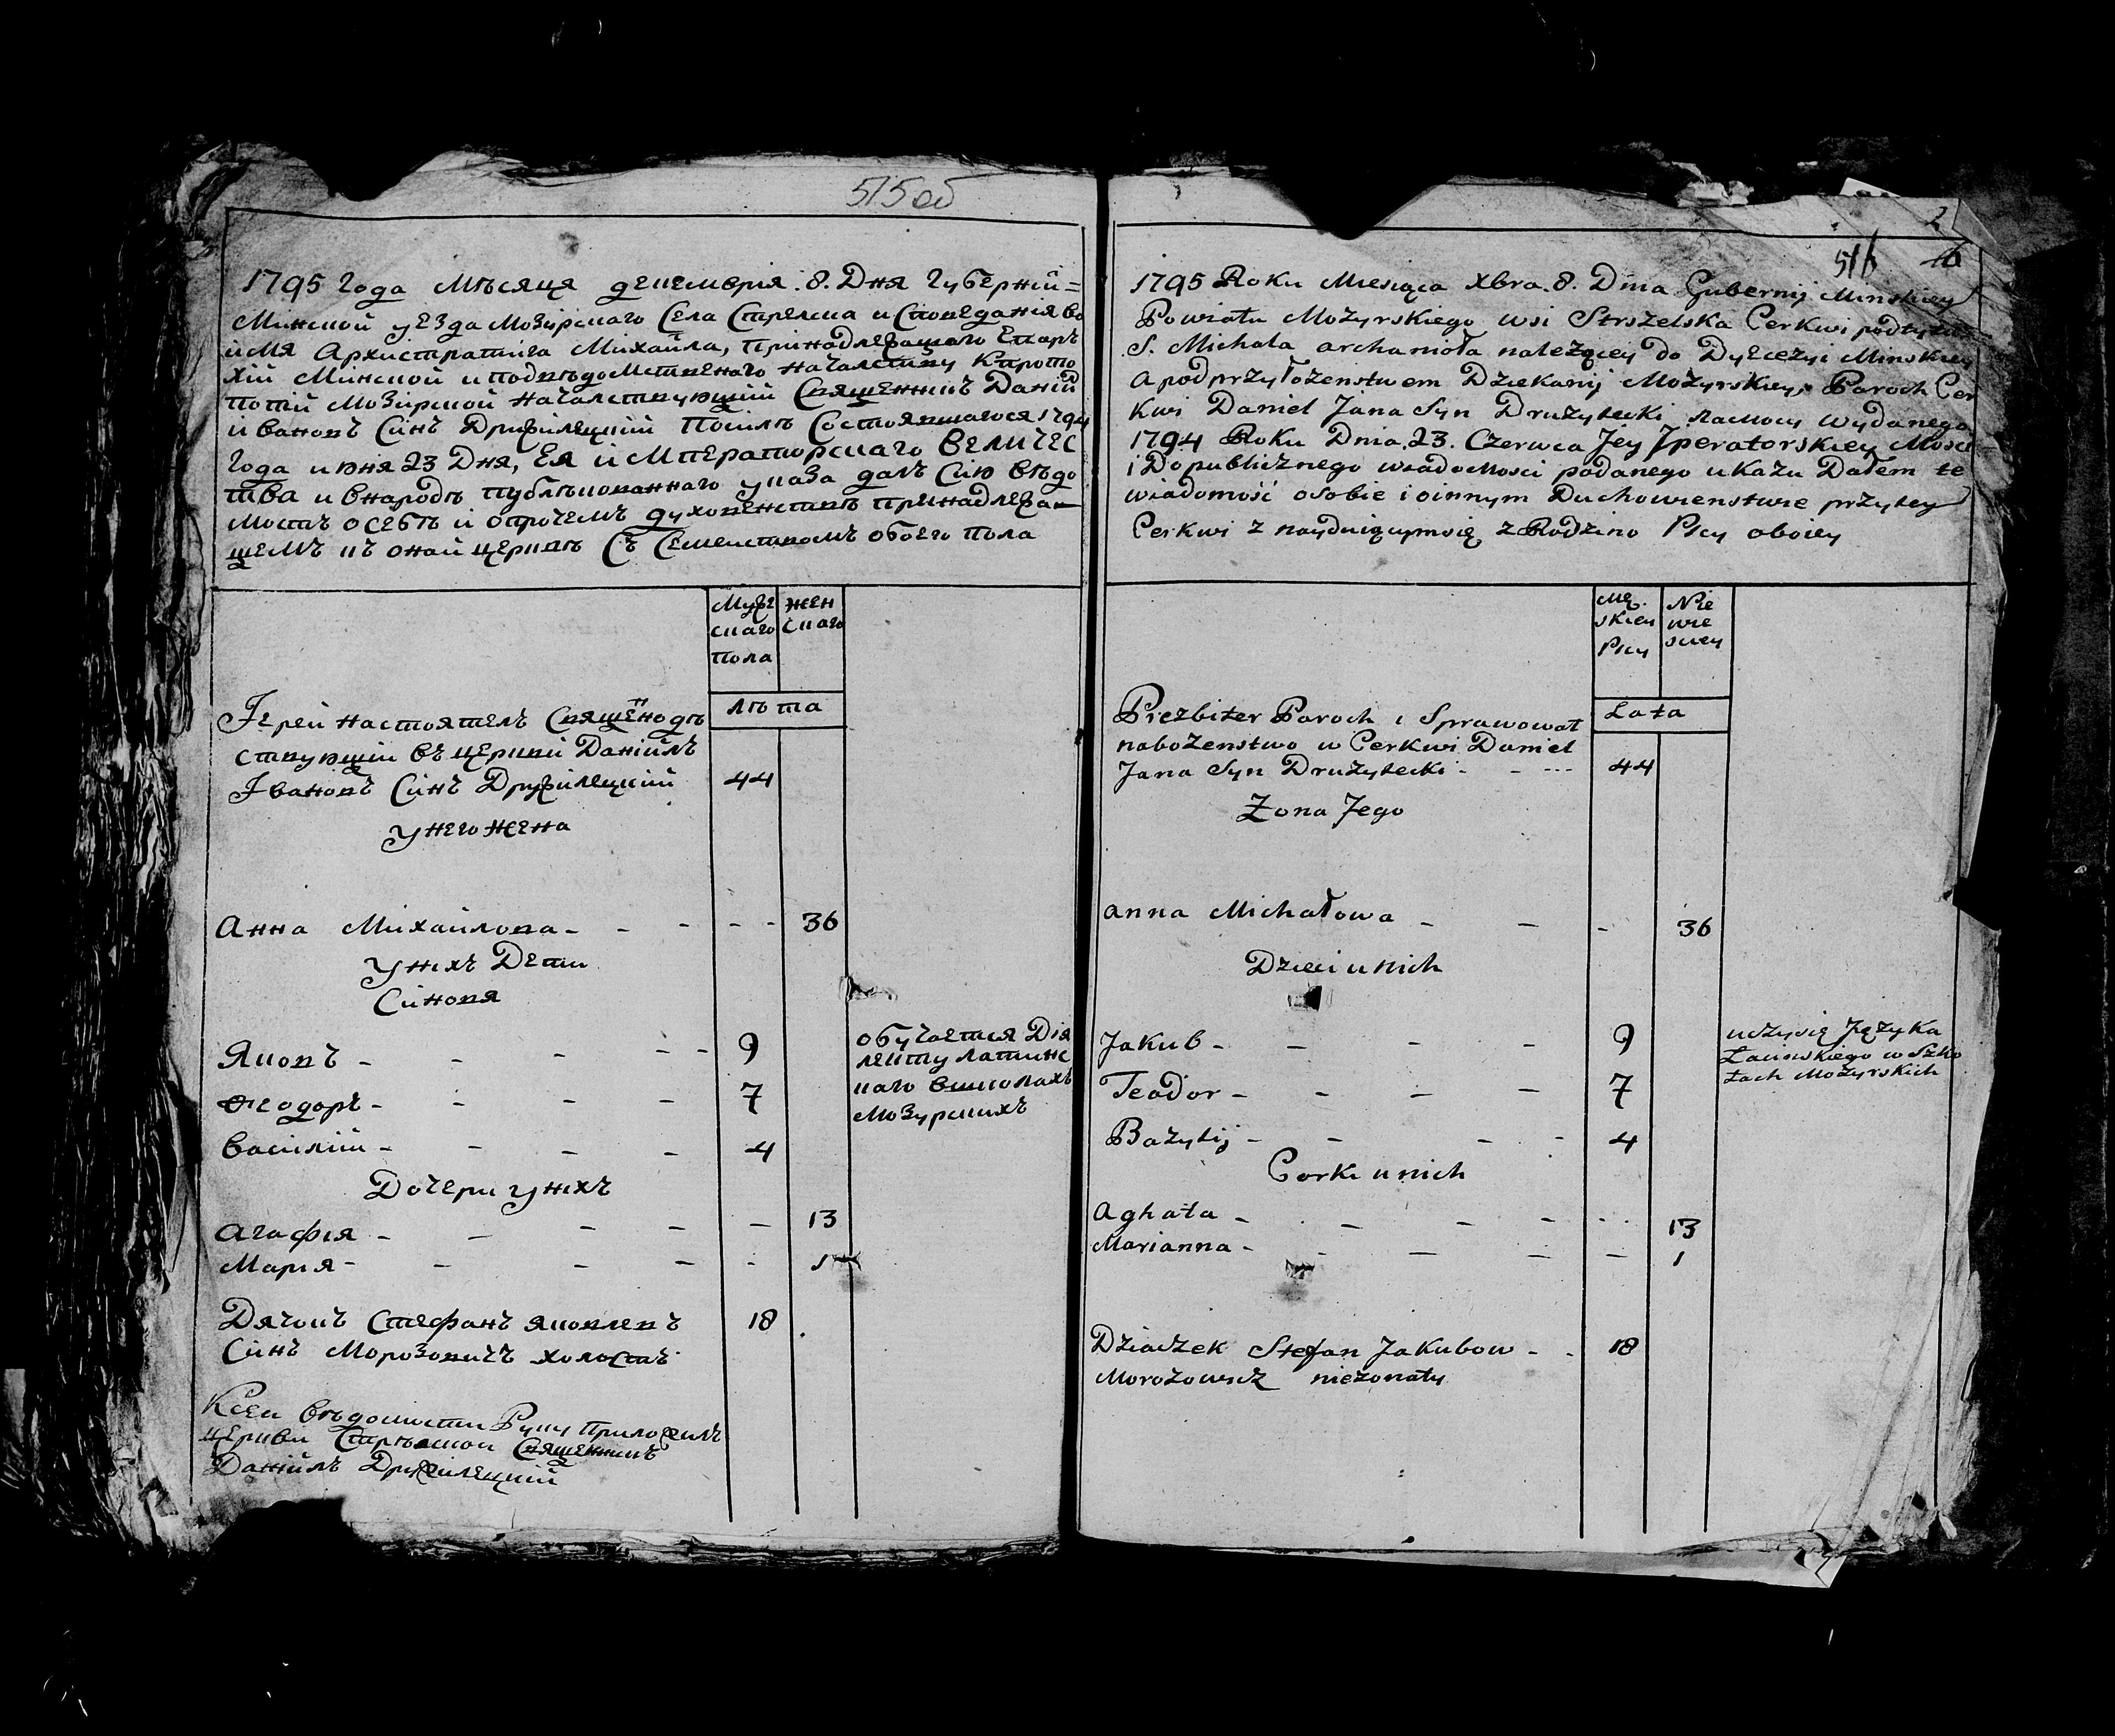 515 об
1795 Года Мѣсяця декемврія .8. Дня Губерній=
Минской уезда Мозирскаго Села Стрелска и Споведанія во
имя Архистратига Михаила, принадлежащаго Епар
хій Минской и подвѣдомственаго началству Крото
потій Мозирской началствующій Священникъ Даніил
ивановъ Синъ Дружилецкій посилѣ состоявшагося 1794
Года июня 23 Дня, Ея иМператорскаго ВЕЛИЧЕС
тва и внародъ публѣкованнаго указа далъ Сию вѣдо
мость осебѣ и опрочемъ духовенствѣ принадлежа=
щемъ къ оной церквѣ Съ Семействомъ обоего пола
Муже
скаго
пола
жен
скаго
лѣта
Іерей настоятель Священодѣ
ствующій въ церкви Даніилъ
Івановъ Синъ Дружилецкій 44
У него жена
Анна Михайлова - - - - - 36
У нихъ Дети
Синовя
Яковъ - - - - - 9
обучается Діа
лекту латинс
каго вшколахъ
Мозурскихъ
Ѳеодоръ - - - - 7
Василій - - - - 4
Дочери у нихъ
Агафия - - - - - 13
Мария - - - - - 1
Дячокъ Стефанъ Яковлевъ 18
Синъ Морозовичъ холостъ
Ксей вѣдомости Руку приложилъ
церкви Стрѣлской Священникъ
Даніилъ Дружилецкій
2
516
1795 Roku Miesiąca Xbra .8. Dnia Gubernij Minskiey
Powiatu Mozyrskiego wsi Strszelska Cerkwi podtytu
S. Michała archanioła należącey do Dyecezyi Minskiey
a podprzyłożenstwem Dziekanij Mozyrskiey, Paroch Cer
kwi Daniel Jana Syn Druzylecki namocy wydanego
1794 Roku Dnia .23. Czerwca Jey Jperatorskiey Mosci
i Dopublicznego wiadomosci podanego ukazu Dałem te
wiadomość osobie i oinnym Duchowienstwie przytey
Cerkwi z naydniącymsię z Rodzino Płcy oboiey
Mę
skiey
Płcy
Nie
wie
sciey
Lata
Prezbiter Paroch i Sprawował
nabożenstwo w Cerkwi Daniel
Jana Syn Druzylecki - - --- 44
Zona Jego
Anna Michałowa - - - 36
Dzieci u nich
Jakub - - - - 9
uczysię Języka
Łacinskiego w Szko
łach Mozyrskich
Teodor - - - - 7
Bazylij - - - - 4
Corki u nich
Aghata - - - - - 13
Marianna - - - - - 1
Dziaczek Stefan Jakubow - - 18
Morozowicz niezonaty